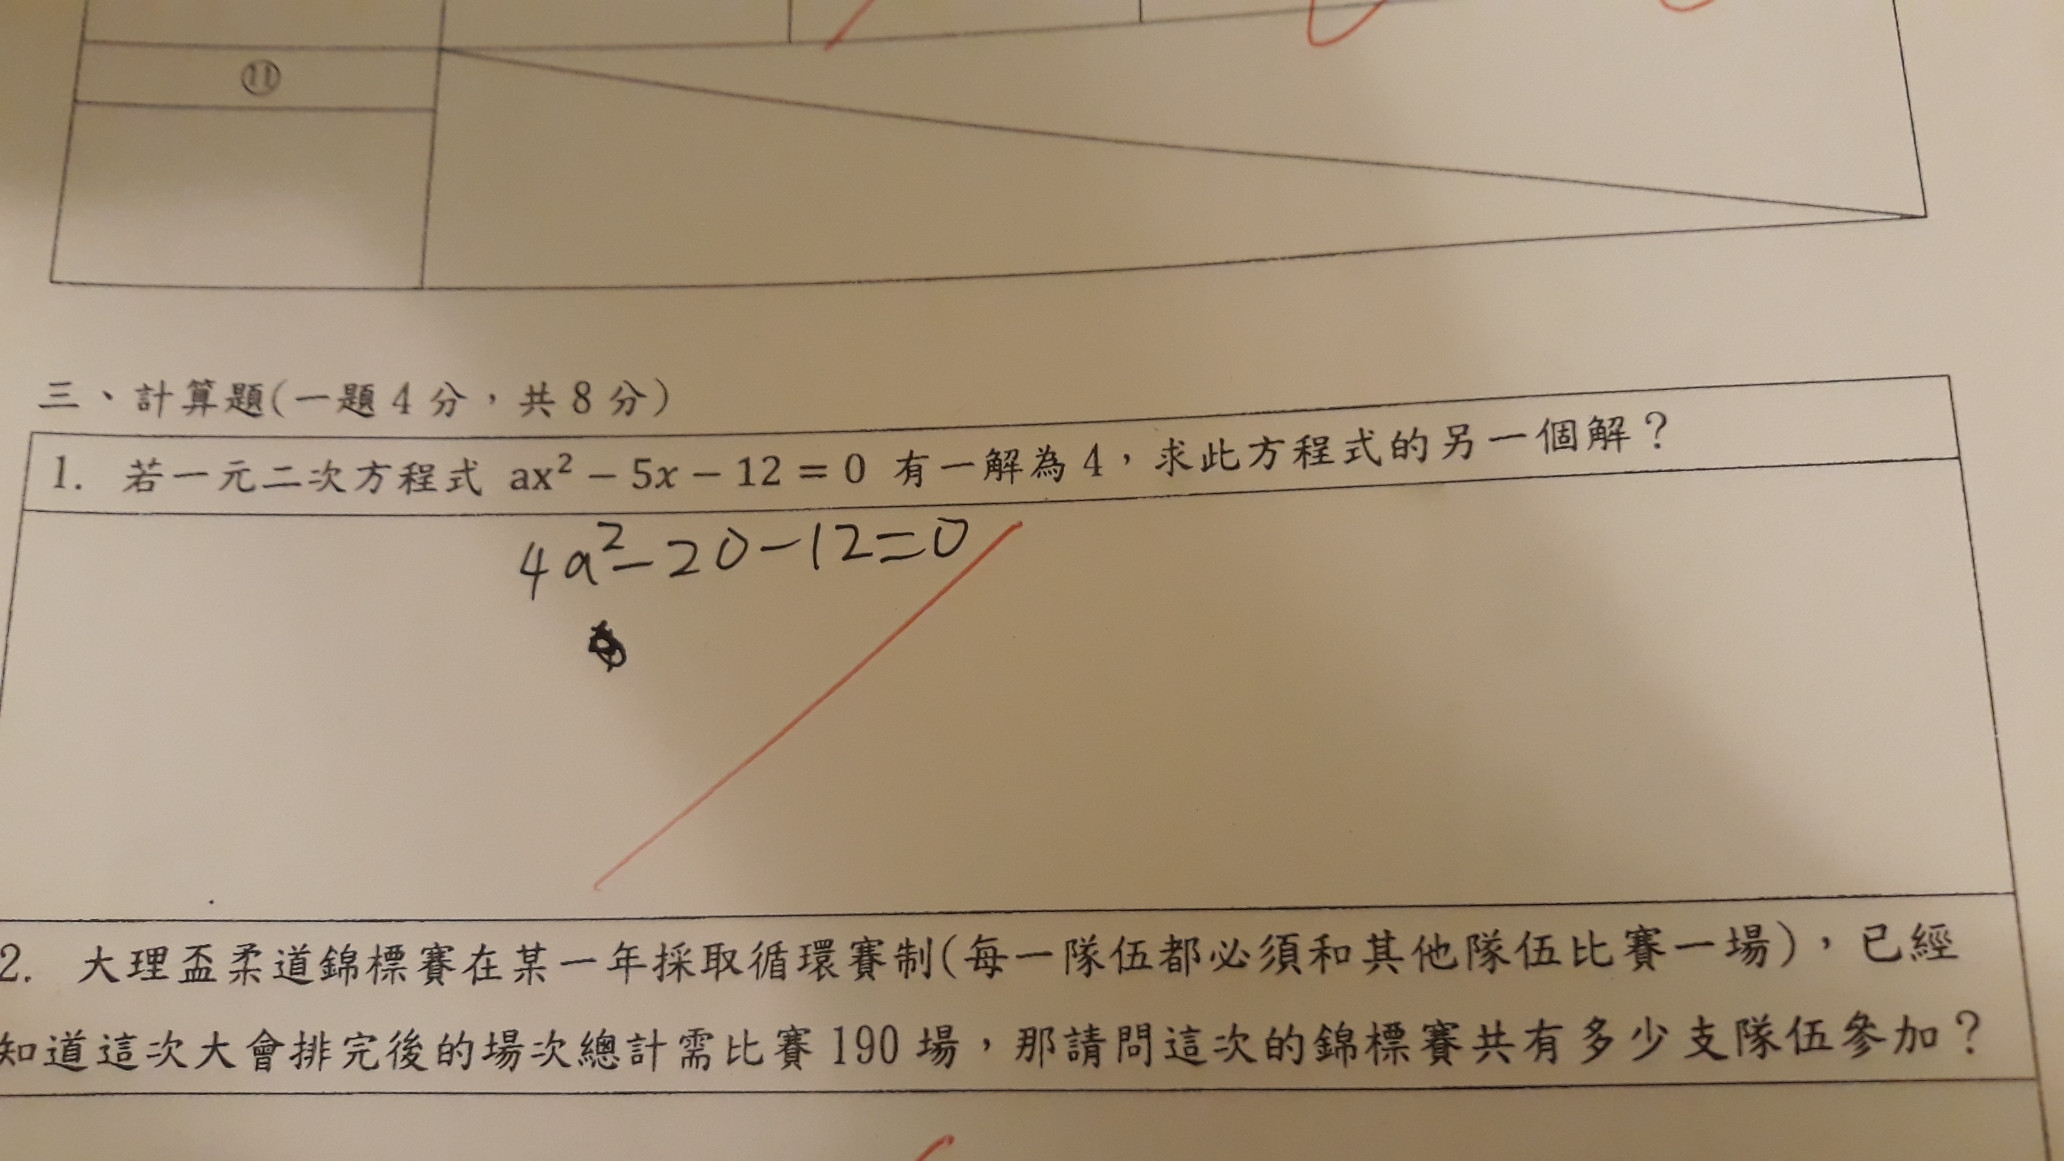 ⑪
三、計算題(一題4分，共8分)
1. 若一元二次方程式 ax² − 5x − 12 = 0 有一解為4，求此方程式的另一個解？
4a²−20−12=0
2. 大理盃柔道錦標賽在某一年採取循環賽制(每一隊伍都必須和其他隊伍比賽一場)，已經
知道這次大會排完後的場次總計需比賽190場，那請問這次的錦標賽共有多少支隊伍參加？